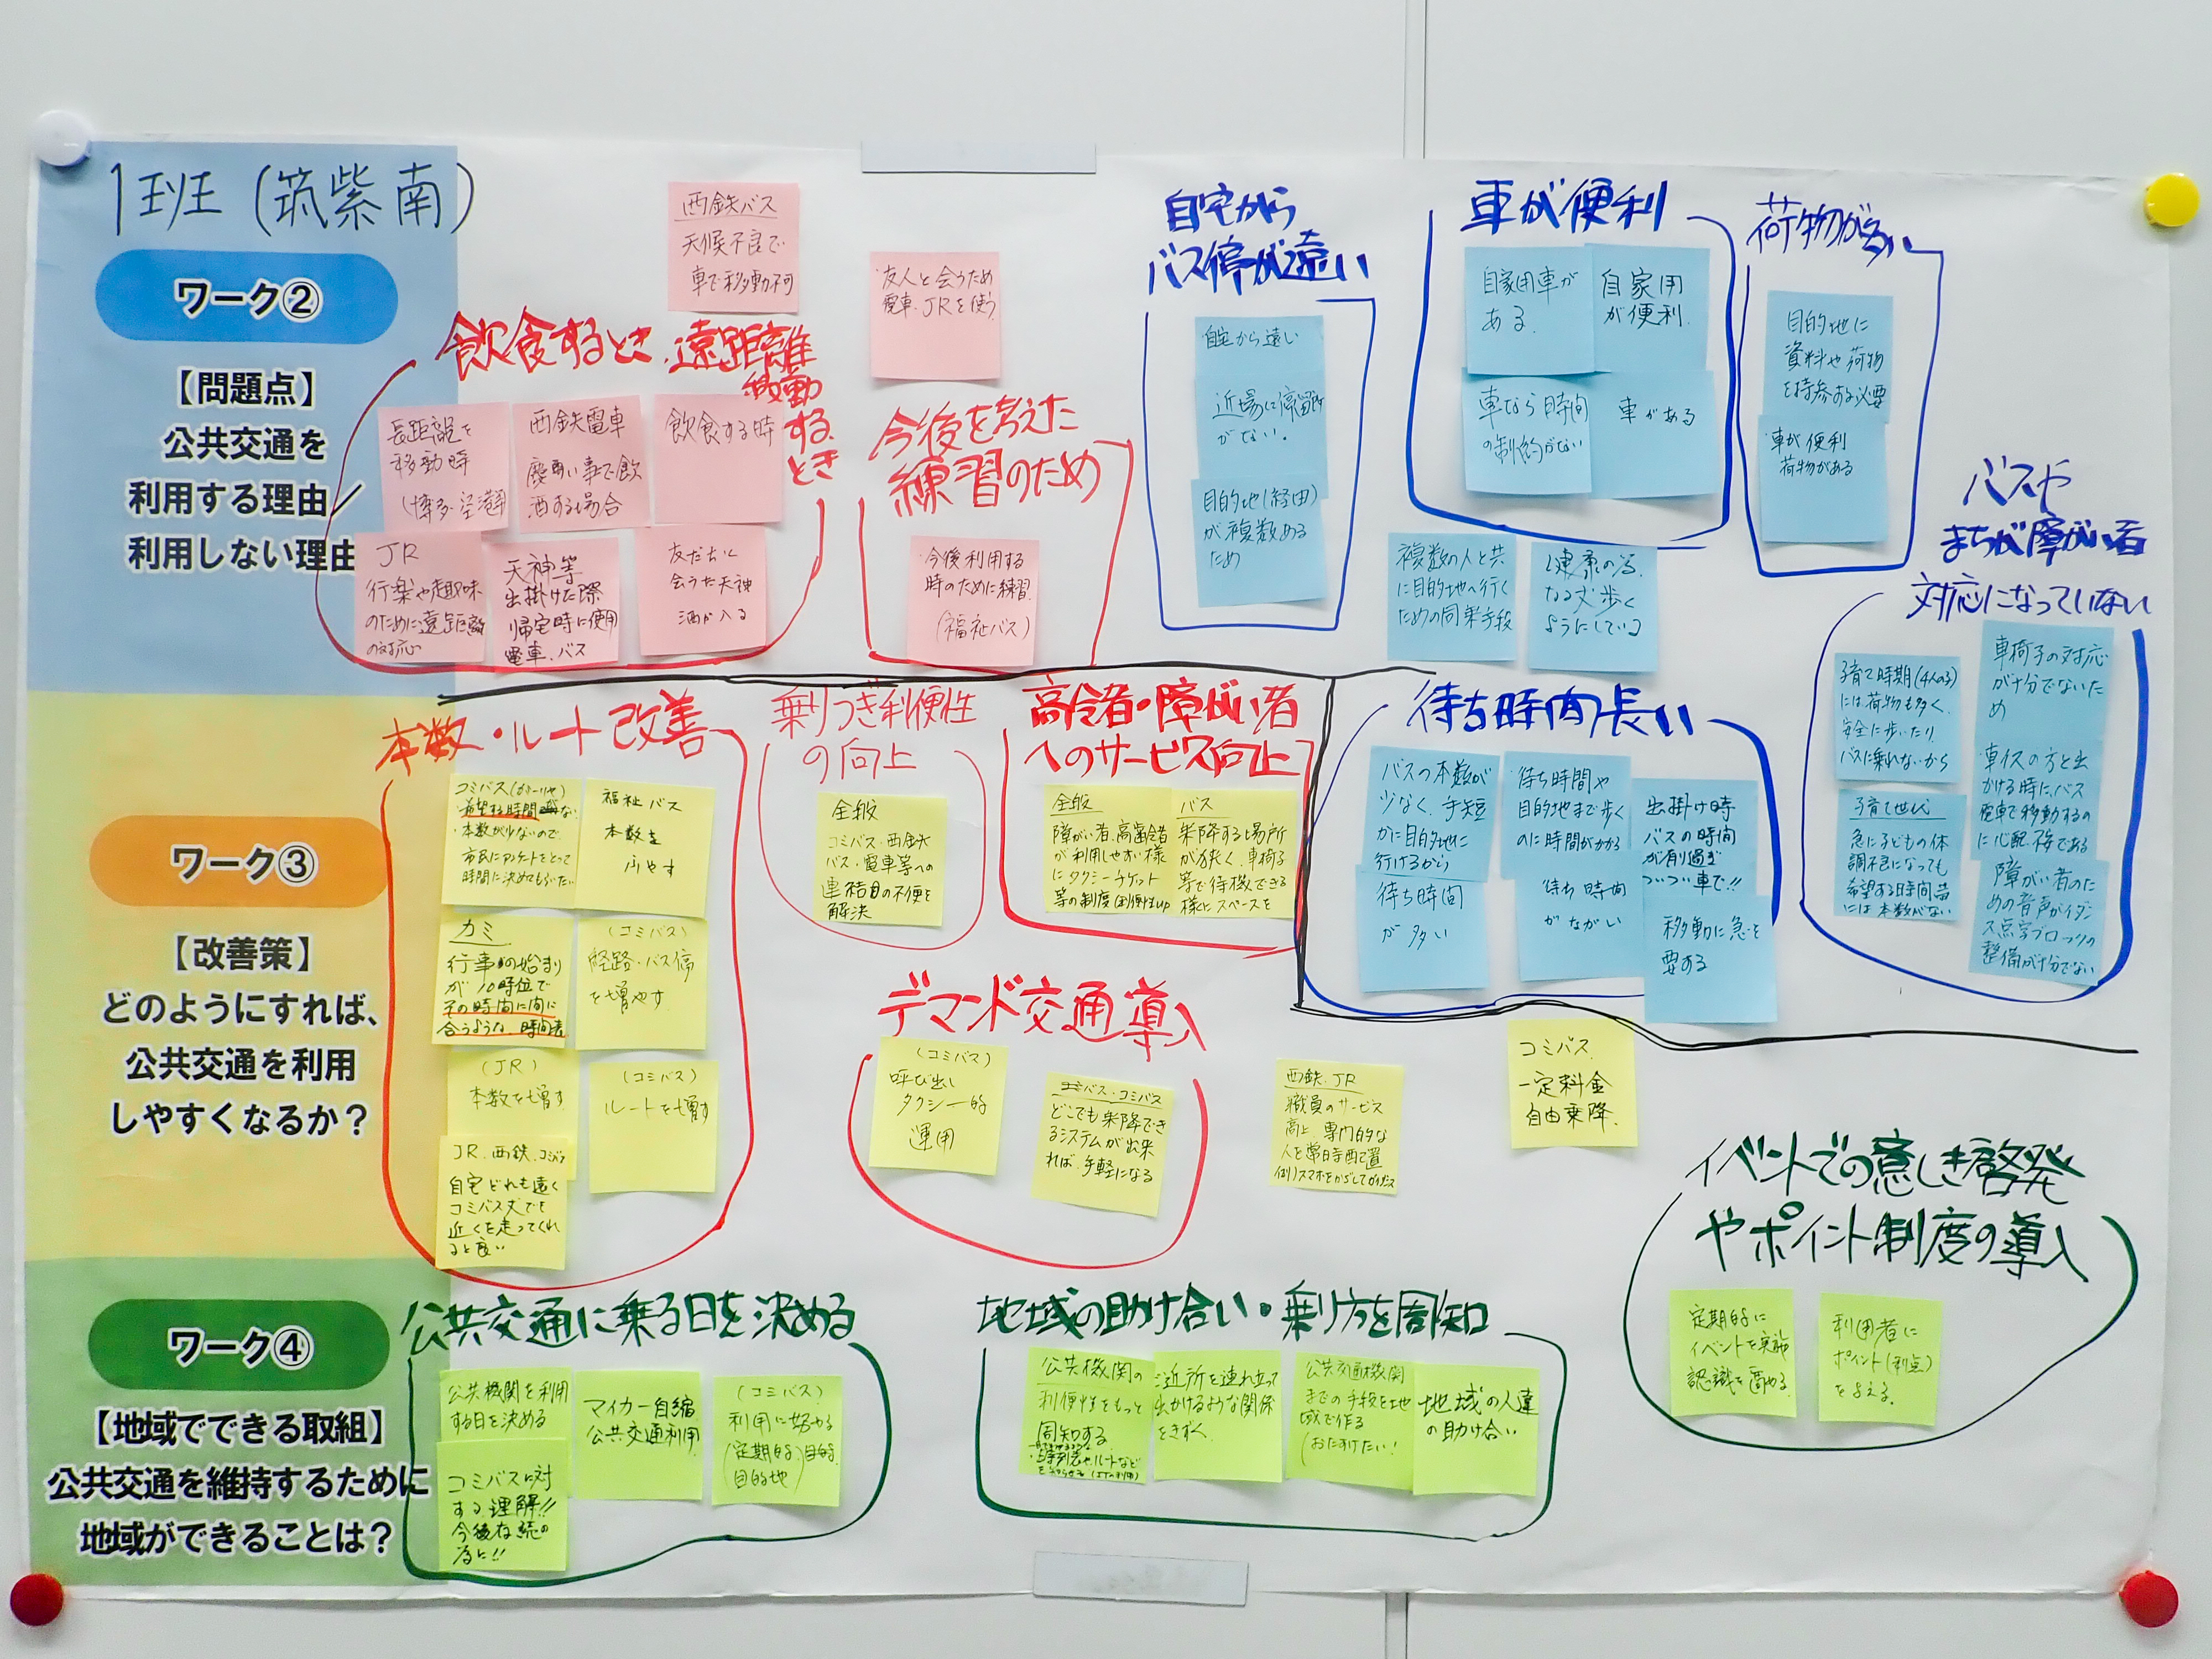 1班(筑紫南)
ワーク②
【問題点】
公共交通を
利用する理由／
利用しない理由
西鉄バス
天候不良で
車で移動不可
友人と会うため
電車、JRを使う
飲食するとき、遠距離
移動
する
とき
長距離を
移動時
(博多・空港用
西鉄電車
慶弔い事で飲
酒する場合
飲食する時
JR
行楽や趣味
のために遠距離
の対応
天神等
出掛けた際
帰宅時に使用
電車、バス
友だちと
会うた天神
酒が入る
今後を考えた
練習のため
今後利用する
時のために練習
(福祉バス)
自宅から
バス停が遠い
自宅から遠い
近場に停留所
がない。
目的地(経由)
が複数ある
ため
車が便利
自家用車が
ある。
自家用
が便利.
車なら時間
の制約がない
車がある
荷物が多い
目的地に
資料や荷物
を持参する必要
車が便利
荷物がある
複数の人と共
に目的地へ行く
ための同乗手段
健康の為、
なる丈歩く
ようにしている
バスや
まちが障がい者
対応になっていない
子育て時期(4人の子)
には荷物も多く、
安全に歩いたり
バスに乗れないから
子育て世代
急に子どもの体
調不良になっても
希望する時間帯
には本数がない
車椅子の対応
が十分でないた
め
車イスの方と出
かける時に、バス
電車で移動するの
に心配・
障がい者のた
めの音声ガイダン
ス点字ブロックの
整備が十分でない
待ち時間長い
バスの本数が
少なく、手短
かに目的地に
行けるから
待ち時間や
目的地まで歩く
のに時間がかかる
出掛け時
バスの時間
が有り過ぎ
ついつい車で!!
待ち時間
が多い
待ち時間
がながい
移動に急を
要する
ワーク③
【改善策】
どのようにすれば、
公共交通を利用
しやすくなるか？
本数・ルート改善
コミバス
希望する時間
本数が少ないので
市民にアンケートをとって
時間に決めてもらいたい
福祉バス
本数を
ふやす
カミ
行事の始まり
が10時位で
その時間に間に
合うような、時間表
(コミバス)
経路・バス停
を増やす
(JR)
本数を増す
(コミバス)
ルートを増す
JR、西鉄、コミバス
自宅どれも遠く
コミバス丈でも
近くを走ってくれ
ると良い
乗りつぎ利便性
の向上
全般
コミバス・西鉄
バス・電車等への
連結の不便を
解決
高齢者・障がい者
へのサービス向上
全般
障がい者、高齢者
が利用しやすい様
にタクシーチケット
等の制度
バス
乗降する場所
が狭く、車椅子
等で待機できる
様に、スペースを
デマンド交通導入
(コミバス)
呼び出し
タクシー的
運用
コミバス
どこでも乗降でき
るシステムが出来
れば、手軽になる
西鉄、JR
職員のサービス
向上 専門的な
人を常時配置
例)スマホをかざしてガイダンス
コミバス、
一定料金
自由乗降.
ワーク④
【地域でできる取組】
公共交通を維持するために
地域ができることは？
公共交通に乗る日を決める
公共機関を利用
する日を決める
マイカー自縮
公共交通利用
(コミバス)
利用に努める
(定期的)目的
目的地
コミバスに対
する理解!!
今後存続の
為に!!
地域の助け合い・乗り方を周知
公共機関の
利便性をもっと
周知する
ご近所を連れ立って
出かけるような関係
をきずく.
公共交通機関
までの手段を地
域で作る
(おたすけたい!
地域の人達
の助け合い
イベントでの意しき啓発
やポイント制度の導入
定期的に
イベントを実施
認識を高める.
利用者に
ポイント(利点)
を与える.